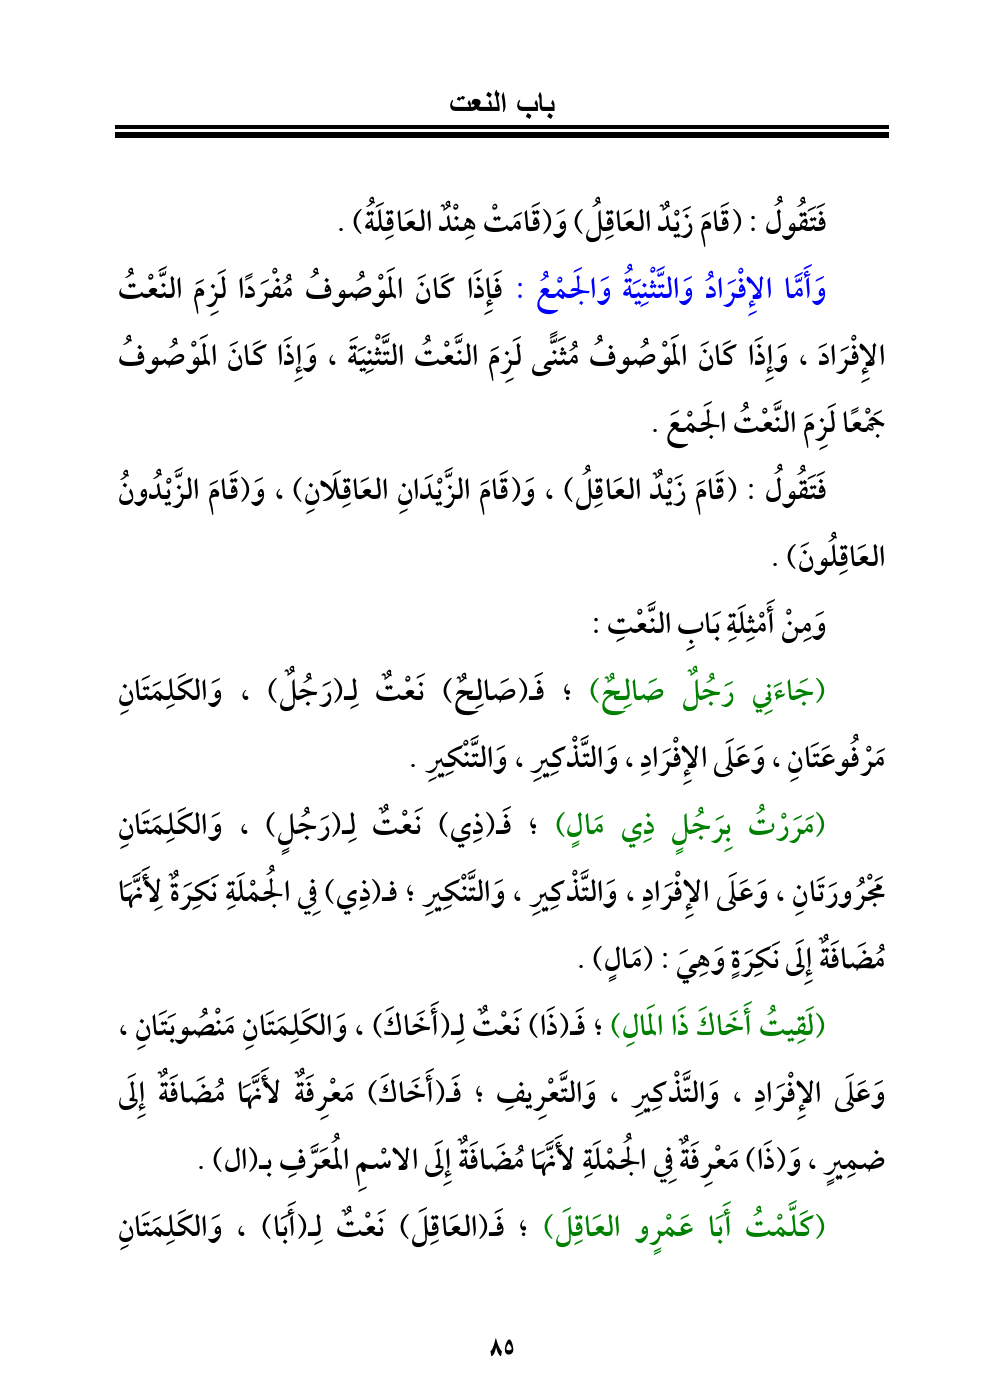 باب النعت
فَتَقُولُ : (قَامَ زَيْدٌ العَاقِلُ) وَ(قَامَتْ هِنْدٌ العَاقِلَةُ) .
وَأَمَّا الإِفْرَادُ وَالتَّثْنِيَةُ وَالجَمْعُ : فَإِذَا كَانَ المَوْصُوفُ مُفْرَدًا لَزِمَ النَّعْتُ
الإِفْرَادَ ، وَإِذَا كَانَ المَوْصُوفُ مُثَنًّى لَزِمَ النَّعْتُ التَّثْنِيَةَ ، وَإِذَا كَانَ المَوْصُوفُ
جَمْعًا لَزِمَ النَّعْتُ الجَمْعَ .
فَتَقُولُ : (قَامَ زَيْدٌ العَاقِلُ) ، وَ(قَامَ الزَّيْدَانِ العَاقِلَانِ) ، وَ(قَامَ الزَّيْدُونُ
العَاقِلُونَ) .
وَمِنْ أَمْثِلَةِ بَابِ النَّعْتِ :
(جَاءَنِي رَجُلٌ صَالِحٌ) ؛ فَـ(صَالِحٌ) نَعْتٌ لِـ(رَجُلٌ) ، وَالكَلِمَتَانِ
مَرْفُوعَتَانِ ، وَعَلَى الإِفْرَادِ ، وَالتَّذْكِيرِ ، وَالتَّنْكِيرِ .
(مَرَرْتُ بِرَجُلٍ ذِي مَالٍ) ؛ فَـ(ذِي) نَعْتٌ لِـ(رَجُلٍ) ، وَالكَلِمَتَانِ
مَجْرُورَتَانِ ، وَعَلَى الإِفْرَادِ ، وَالتَّذْكِيرِ ، وَالتَّنْكِيرِ ؛ فـ(ذِي) فِي الجُمْلَةِ نَكِرَةٌ لِأَنَّهَا
مُضَافَةٌ إِلَى نَكِرَةٍ وَهِيَ : (مَالٍ) .
(لَقِيتُ أَخَاكَ ذَا المَالِ) ؛ فَـ(ذَا) نَعْتٌ لِـ(أَخَاكَ) ، وَالكَلِمَتَانِ مَنْصُوبَتَانِ ،
وَعَلَى الإِفْرَادِ ، وَالتَّذْكِيرِ ، وَالتَّعْرِيفِ ؛ فَـ(أَخَاكَ) مَعْرِفَةٌ لأَنَّهَا مُضَافَةٌ إِلَى
ضمِيرٍ ، وَ(ذَا) مَعْرِفَةٌ فِي الجُمْلَةِ لأَنَّهَا مُضَافَةٌ إِلَى الاسْمِ المُعَرَّفِ بـ(ال) .
(كَلَّمْتُ أَبَا عَمْرٍو العَاقِلَ) ؛ فَـ(العَاقِلَ) نَعْتٌ لِـ(أَبَا) ، وَالكَلِمَتَانِ
٨٥